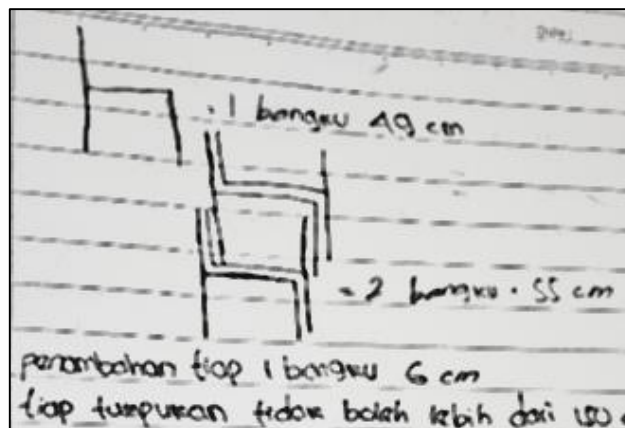 . 1 bangku 49 cm
= 2 bangku . 55 cm
penambahan tiap 1 bangku 6 cm
tiap tumpukan tidak boleh lebih dari 150